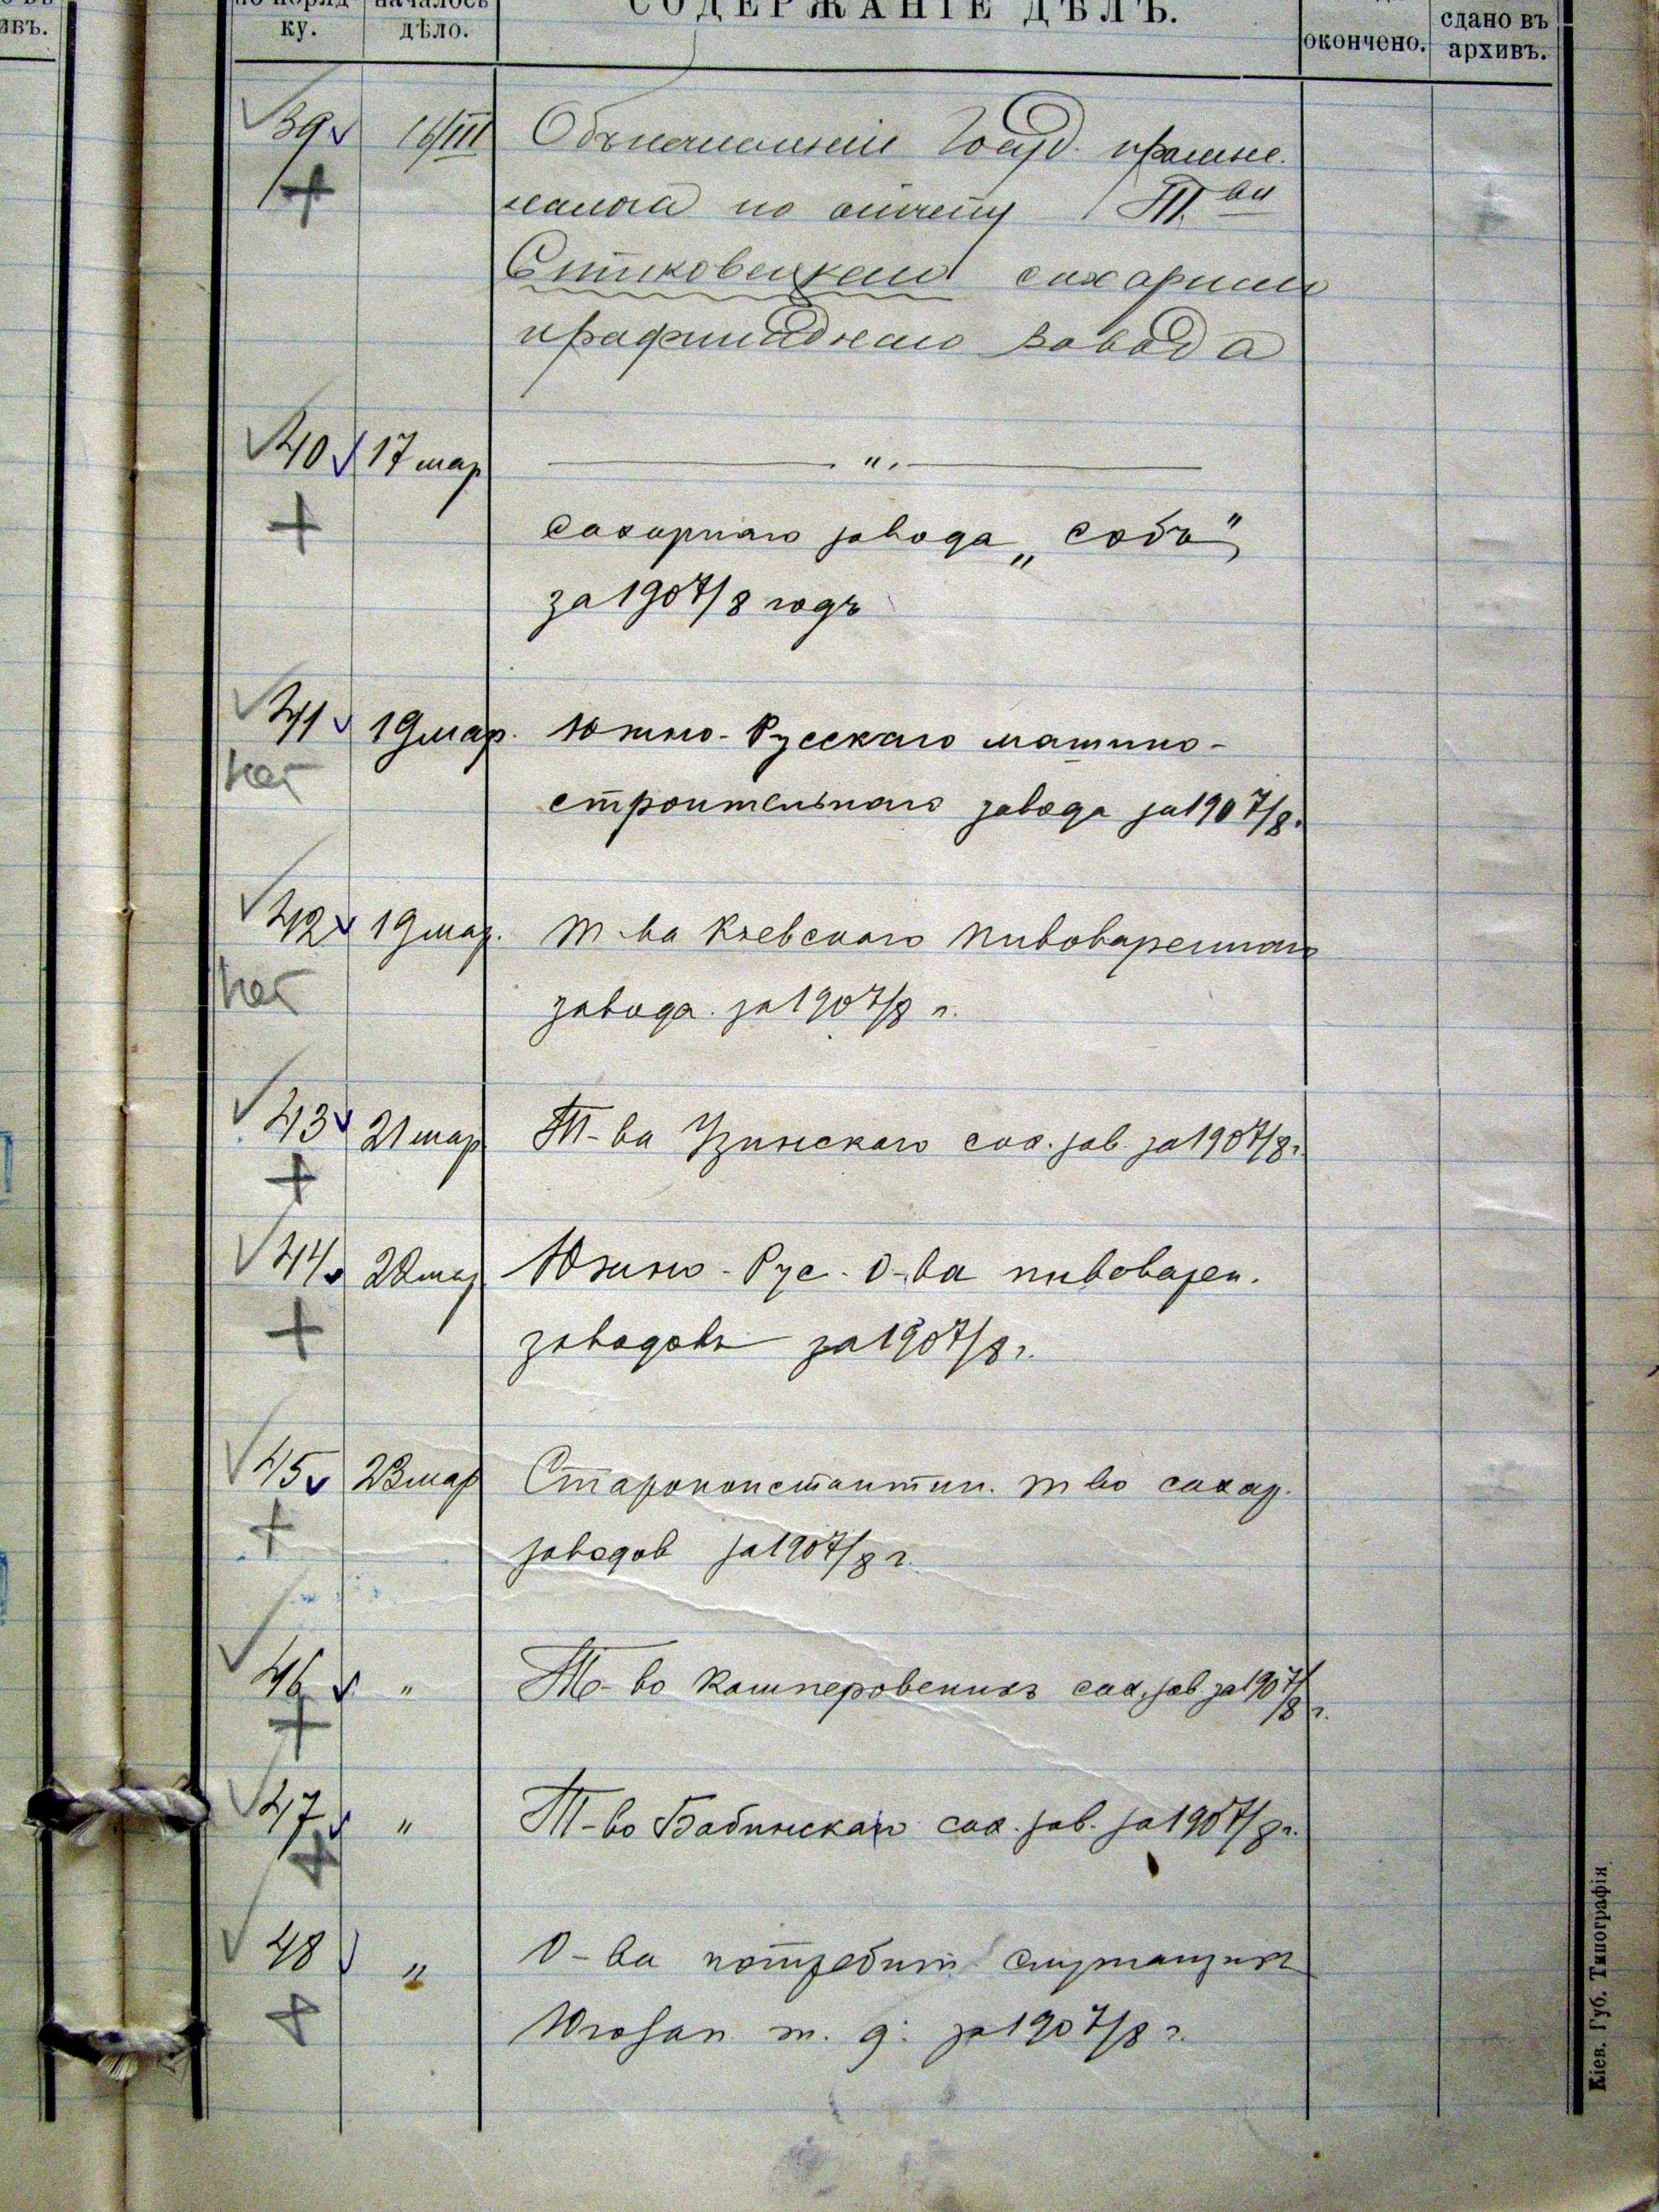 ивъ.
ку.
дѣло.
СОДЕРЖАНІЕ ДѢЛЪ.
окончено.
сдано въ
архивъ.
39 16/III Обложеніи Госуд. промысл.
налога по отчету Т-ва
Ситковецкаго сахарнаго
рафинаднаго завода
40 17 мар „
Сахарнаго завода „Собъ"
за 1907/8 годъ
41 19 мар. Южно-Русскаго машино-
нет
строительнаго завода за 1907/8.
42 19 мар. Т-ва Кіевскаго пивовареннаго
нет
завода за 1907/8 г.
43 21 мар Т-ва Узинскаго сах. зав. за 1907/8 г.
44 22 мар Южно-Рус. О-ва пивоварен.
заводовъ за 1907/8 г.
45 23 мар Староконстантин. т во сахар.
заводов за 1907/8 г.
46 " Т-во Кашперовскихъ сах. зав за 1907/8 г.
47 " Т-во Бабинскаго сах. зав. за 1907/8 г.
48 " О-ва потребит служащихъ
Югозап ж. д. за 1907/8 г.
Кіев. Губ. Типографія